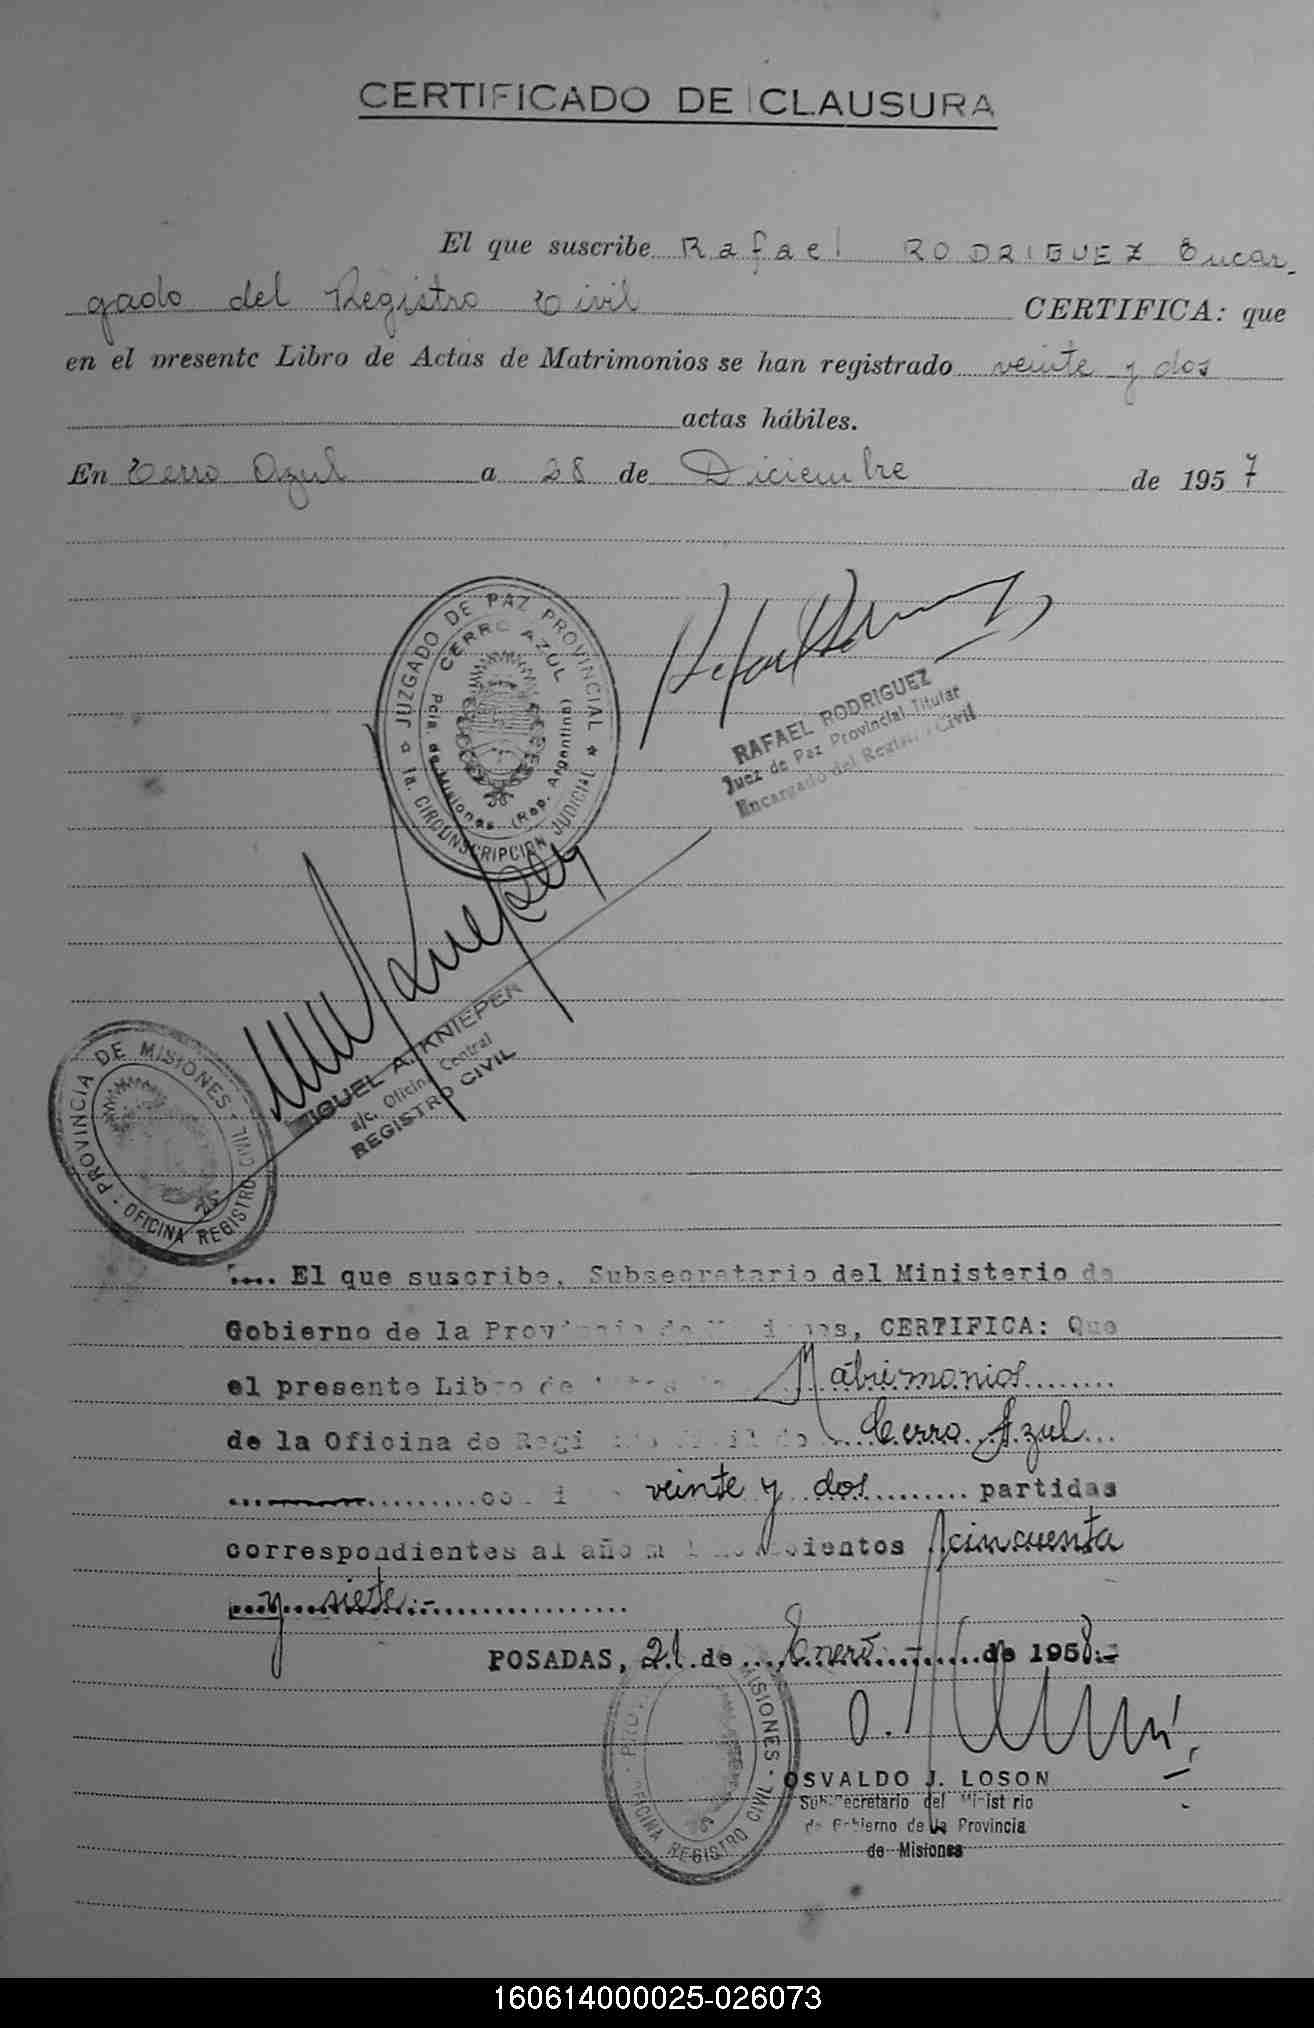 CERTIFICADO DE CLAUSURA
El que suscribe Rafael RODRIGUEZ Encar-
gado del Registro Civil CERTIFICA: que
en el presente Libro de Actas de Matrimonios se han registrado veinte y dos
actas hábiles.
En Cerro Azul a 28 de Diciembre de 1957
JUZGADO DE PAZ PROVINCIAL
CERRO AZUL
Pcia. de Misiones (Rep. Argentina)
1a. CIRCUNSCRIPCION JUDICIAL
RAFAEL RODRIGUEZ
Juez de Paz Provincial Titular
Encargado del Registro Civil
MIGUEL A. KNIEPER
a/c. Oficina Central
REGISTRO CIVIL
PROVINCIA DE MISIONES - OFICINA REGISTRO CIVIL
.... El que suscribe, Subsecretario del Ministerio de
Gobierno de la Provincia de Misiones, CERTIFICA: Que
el presente Libro de Actas de Matrimonios
de la Oficina de Registro Civil de Cerro Azul
veinte y dos partidas
correspondientes al año mil novecientos cincuenta
y siete.-
POSADAS, 21 de Enero de 1958.-
MISIONES - OFICINA REGISTRO CIVIL
OSVALDO J. LOSON
Sub-Secretario del Ministerio
de Gobierno de la Provincia
de Misiones
160614000025-026073